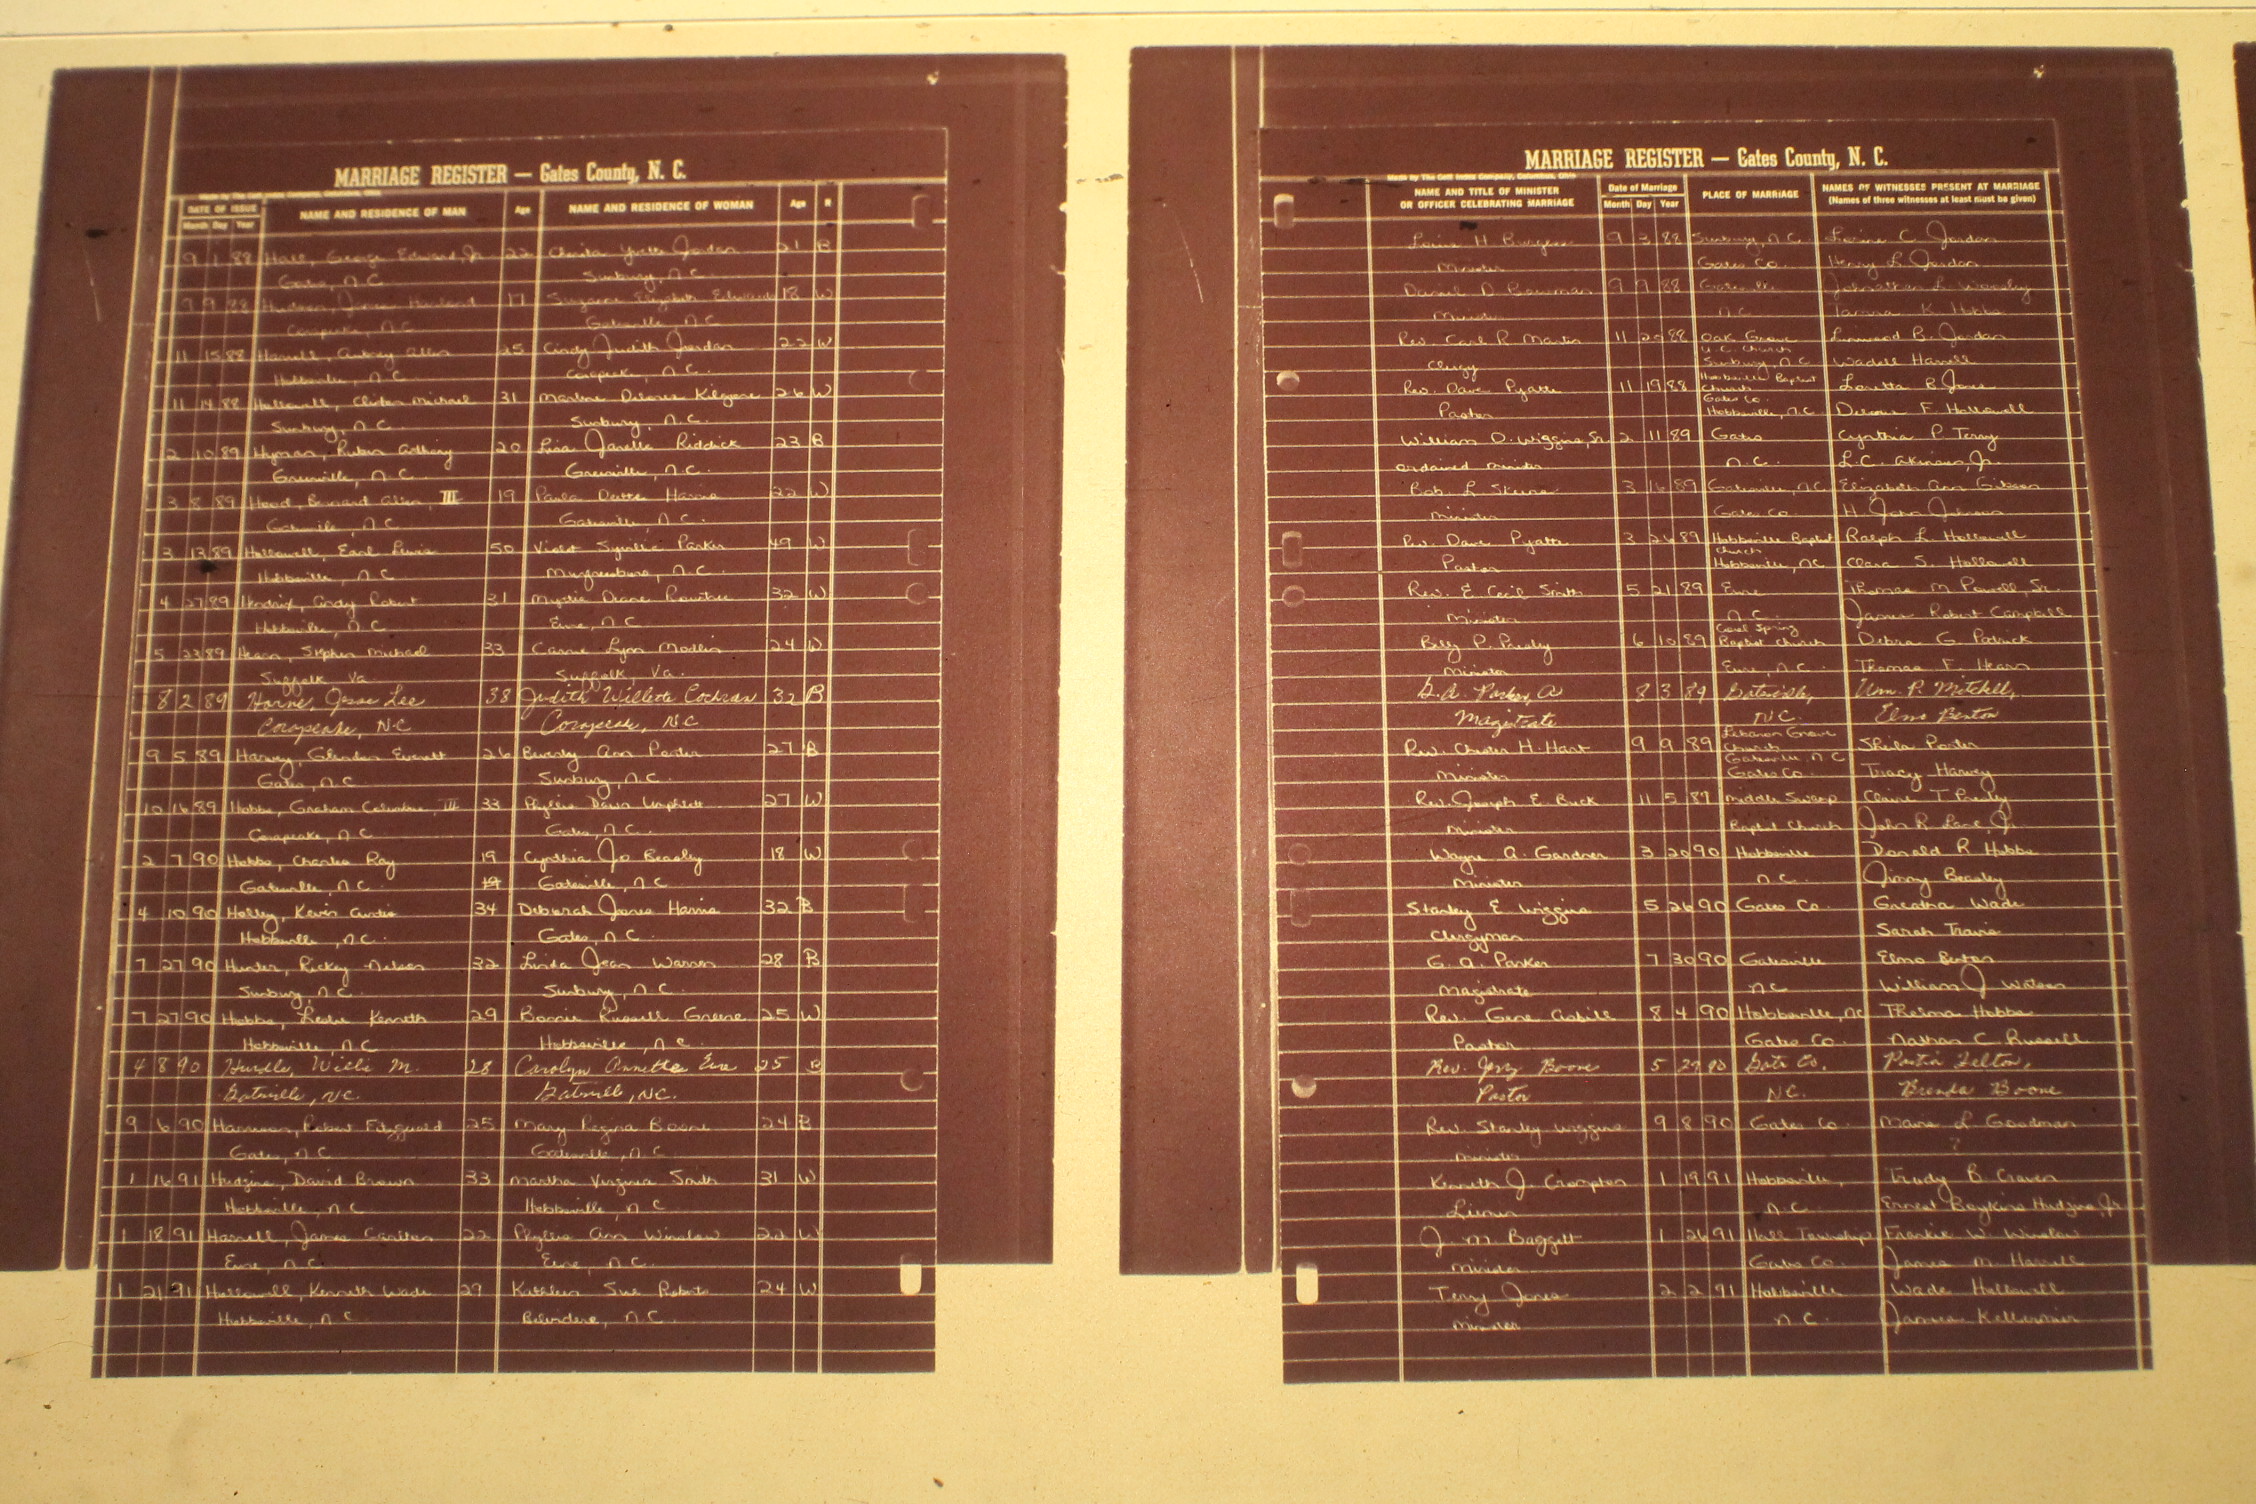 MARRIAGE REGISTER — Gates County, N. C.
DATE OF ISSUE NAME AND RESIDENCE OF MAN Age NAME AND RESIDENCE OF WOMAN Age R
Month Day Year
9 1 88 Hall, George Edward, Jr. 22 Yvette Jordan 21 B
Gates, N.C. Sunbury, N.C.
9 9 88 Hudson, 17 Suzanne Elizabeth Edwards 18 W
Corapeake, N.C. Gatesville, N.C.
11 15 88 Harrell, Aubrey Allen 25 Cindy Judith Jordan 22 W
Hobbsville, N.C. Corapeake, N.C.
11 14 88 Hollowell, Clinton Michael 31 Marlene Delores Kilgore 26 W
Sunbury, N.C. Sunbury, N.C.
2 10 89 Hyman, Anthony 20 Lisa Janelle Riddick 23 B
Greenville, N.C. Greenville, N.C.
3 8 89 Hood, Bernard Allen, III 19 Paula 22 W
Gatesville, N.C. Gatesville, N.C.
3 13 89 Hollowell, Earl Lewis 50 Violet Parker 49 W
Hobbsville, N.C. N.C.
4 27 89 Hendrix, Andy Robert 31 Diane Rountree 32 W
Hobbsville, N.C. Eure, N.C.
5 23 89 Hearn, Stephen Michael 33 Carrie Lynn Modlin 24 W
Suffolk Va Suffolk, Va.
8 2 89 Horne, Jesse Lee 38 Judith Willette Cochran 32 B
Corapeake, NC Corapeake, NC
9 5 89 Harvey, Glendon Everett 26 Beverly Ann Porter 27 B
Gates, N.C. Sunbury, N.C.
10 16 89 Hobbs, Graham Columbus III 33 Phyllis Dawn Umphlett 27 W
Corapeake, N.C. Gates, N.C.
2 7 90 Hobbs, Charles Ray 19 Cynthia Jo Beasley 18 W
Gatesville, N.C. Gatesville, N.C.
4 10 90 Holley, Kevin Curtis 34 Deborah Jones Harris 32 B
Hobbsville, N.C. Gates, N.C.
7 27 90 Hunter, Rickey Nelson 32 Linda Jean Warren 28 B
Sunbury, N.C. Sunbury, N.C.
7 27 90 Hobbs, Leslie Kenneth 29 Bonnie Russell Greene 25 W
Hobbsville, N.C. Hobbsville, N.C.
4 8 90 Hurdle, Willie M. 28 Carolyn Annette Eure 25 B
Gatesville, NC. Gatesville, NC.
9 6 90 Harrison, Robert Fitzgerald 25 Mary Regina Boone 24 B
Gates, N.C. Gatesville, N.C.
1 16 91 Hudgins, David Brown 33 Martha Virginia Smith 31 W
Hobbsville, N.C. Hobbsville, N.C.
1 18 91 Harrell, James Carlton 22 Phyllis Ann Winslow 22 W
Eure, N.C. Eure, N.C.
1 21 91 Hollowell, Kenneth Wade 29 Kathleen Sue Roberts 24 W
Hobbsville, N.C. Belvidere, N.C.
MARRIAGE REGISTER — Gates County, N. C.
Made by The Cott Index Company, Columbus, Ohio
NAME AND TITLE OF MINISTER OR OFFICER CELEBRATING MARRIAGE Date of Marriage PLACE OF MARRIAGE NAMES OF WITNESSES PRESENT AT MARRIAGE
Month Day Year (Names of three witnesses at least must be given)
H. Burgess 9 3 88 Sunbury, N.C. C. Jordan
Minister Gates Co. Henry L. Jordan
Daniel D. Bowman 9 9 88 Gatesville Johnathan L. Woolsey
Minister N.C. Tamra K. Hobbs
Rev. Carl R. Martin 11 20 88 Oak Grove Linwood B. Jordan
U.C. Church
Clergy Sunbury, N.C. Wadell Harrell
Rev. Dave Pyatte 11 19 88 Hobbsville Baptist Church Loretta B. Jones
Gates Co.
Pastor Hobbsville, N.C. Delores F. Hollowell
William D. Wiggins, Sr. 2 11 89 Gates Cynthia P. Terry
Ordained Minister N.C. L.C. Atkinson, Jr.
Bob L. 3 16 89 Gatesville, N.C. Elizabeth Ann Gibson
Minister Gates Co. H. John Johnson
Rev. Dave Pyatte 3 26 89 Hobbsville Baptist Ralph L. Hollowell
Church
Pastor Hobbsville, NC Clara S. Hollowell
Rev. E. Cecil Smith 5 21 89 Eure Thomas M. Powell, Sr.
Minister N.C. James Robert Campbell
Billy P. Presley 6 10 89 Cool Spring Baptist Church Debra G. Patrick
Minister Eure, N.C. Thomas F. Hearn
G.A. Parker, A 8 3 89 Gatesville, Wm. P. Mitchell,
Magistrate NC. Elmo Benton
Rev. Chester H. Hart 9 9 89 Lebanon Grove Church Shelia Porter
Gatesville, N.C.
Minister Gates Co. Tracy Harvey
Rev. Joseph E. Buck 11 5 89 Middle Swamp Claire T. Presley
Minister Baptist Church John R. Lane, Jr.
Wayne A. Gardner 3 20 90 Hobbsville Donald R. Hobbs
Minister N.C. Jimmy Beasley
Stanley E. Wiggins 5 26 90 Gates Co. Greatha Wade
Clergyman Sarah Travis
G. A. Parker 7 30 90 Gatesville Elmo Benton
Magistrate NC William J Watson
Rev. Gene Asbill 8 4 90 Hobbsville, NC Thelma Hobbs
Pastor Gates Co. Nathan C. Russell
Rev. Jerry Boone 5 27 90 Gates Co. Portia Felton,
Pastor NC. Brenda Boone
Rev. Stanley Wiggins 9 8 90 Gates Co. L. Goodman
Minister ?
Kenneth J. Crompton 1 19 91 Hobbsville, Trudy B. Craven
N.C. Ernest Boykins Hudgins, Jr.
J. M. Baggett 1 26 91 Hall Township Frankie W. Winslow
Minister Gates Co. James M. Harrell
Terry Jones 2 2 91 Hobbsville Wade Hollowell
Minister N.C. James Kellermier